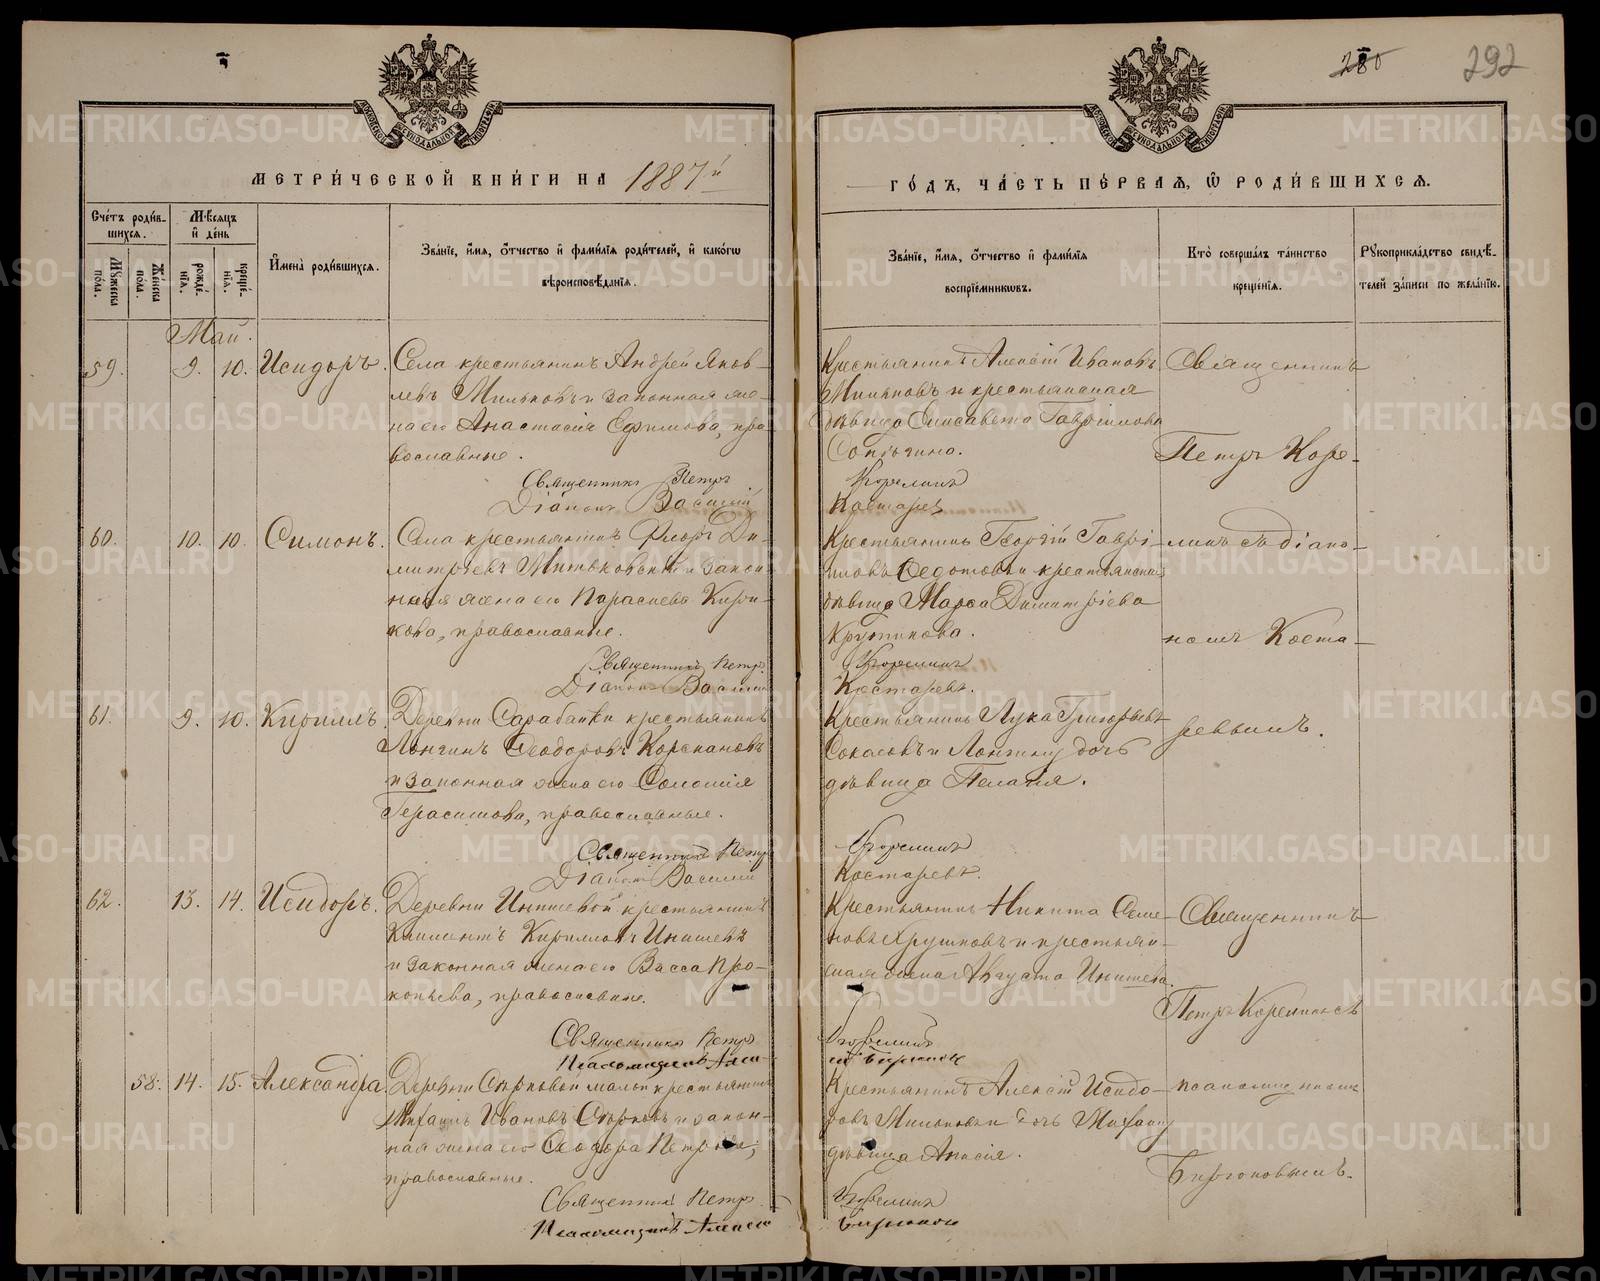 280
292
МЕТРИ́ЧЕСКОЙ КНИ́ГИ НА 1887й
ГО́ДЪ, ЧА́СТЬ ПЕ́РВАѦ, Ѽ РОДИ́ВШИХСѦ.
Сче́тъ роди́в-
шихсѧ.
Мѣсѧцъ
и̑ де́нь
И҆мена̀ роди́вшихсѧ.
Зва́нїе, и҆́мѧ, ѻ҆́тчество и҆ фами́лїѧ роди́телей, и҆ како́гѡ
вѣроисповѣ́данїѧ.
Мꙋжеска по́ла.
Же́нска по́ла.
рожде́нїѧ.
креще́нїѧ.
Зва́нїе, и҆́мѧ, ѻ҆́тчество и҆ фами́лїѧ
воспрїе́мникѡвъ.
Кто̀ соверша́лъ та́инство
креще́нїѧ.
Рꙋкоприкла́дство свидѣ́-
телей за́писи по жела́нїю.
Май.
59. 9. 10. Исидоръ. Села крестьянинъ Андрей Яков-
левъ Мильковъ и законная же-
на его Анастасія Ефимова, пра-
вославные.
Священникъ Петръ
Діаконъ Василій
Крестьянинъ Алексій Ивановъ
Мильковъ и крестьянская
дѣвица Елисавета Гавріилова
Корелинъ
Костарев
Священникъ
Петръ Коре-
60. 10. 10. Симонъ. Села крестьянинъ Флоръ Ди-
митріевъ Митьковскій и закон-
ная жена его Параскева Кири-
кова, православные.
Священникъ Петръ
Діаконъ Василій
Крестьянинъ Георгій Гаврі-
иловъ Седотовъ и крестьянская
дѣвица Марѳа Димитріева
Корелинъ
Костаревъ.
линъ съ діако-
номъ Коста-
61. 9. 10. Кириллъ. Деревни Сарабайки крестьянинъ
Лонгинъ Ѳеодоровъ Корепановъ
и законная жена его Соломія
Герасимова, православные.
Священникъ Петръ
Діаконъ Василій
Крестьянинъ Лука Григорьевъ
Сокасовъ и Лонгину дочь
дѣвица Пелагія.
Корелинъ
Костаревъ.
ревымъ.
62. 13. 14. Исидоръ. Деревни Инишевой крестьянинъ
Климентъ Кирилловъ Инишевъ
и законная жена его Васса Про-
копьева, православные.
Священникъ Петръ
Псаломщикъ Алек-
Крестьянинъ Никита Семе-
новъ Хрушковъ и крестьян-
ская жена Августа Инишева.
Корелинъ
Священникъ
Петръ Корелинъ съ
58. 14. 15. Александра Деревни малой крестьянинъ
Михаилъ Ивановъ и закон-
ная жена его Ѳеодора Петрова,
православные.
Священникъ Петръ
Псаломщикъ Алексій
Крестьянинъ Алексій Исидо-
ровъ и дочь
дѣвица Анисія.
Корелинъ
псаломщикомъ
METRIKI.GASO-URAL.RU